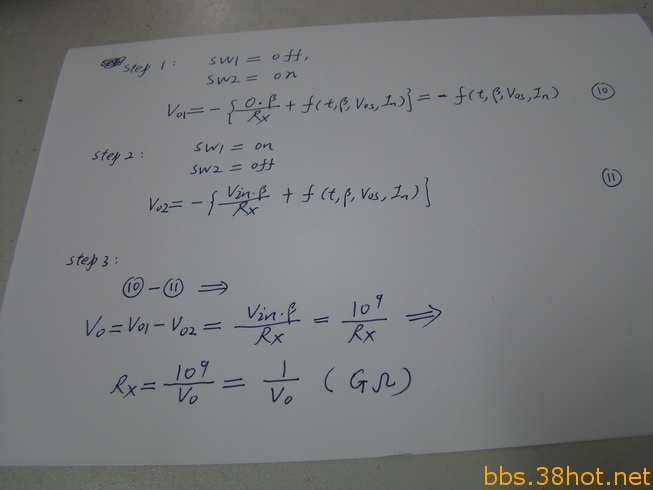 step 1: SW1 = off,
SW2 = on
Vo1 = - {0·β/Rx + f(t,β,Vos,In)} = - f(t,β,Vos,In) ⑩
step 2: SW1 = on
SW2 = off
Vo2 = - {Vin·β/Rx + f(t,β,Vos,In)} ⑪
step 3:
⑩ - ⑪ ⇒
Vo = Vo1 - Vo2 = Vin·β/Rx = 10⁹/Rx ⇒
Rx = 10⁹/Vo = 1/Vo (GΩ)
bbs.38hot.net